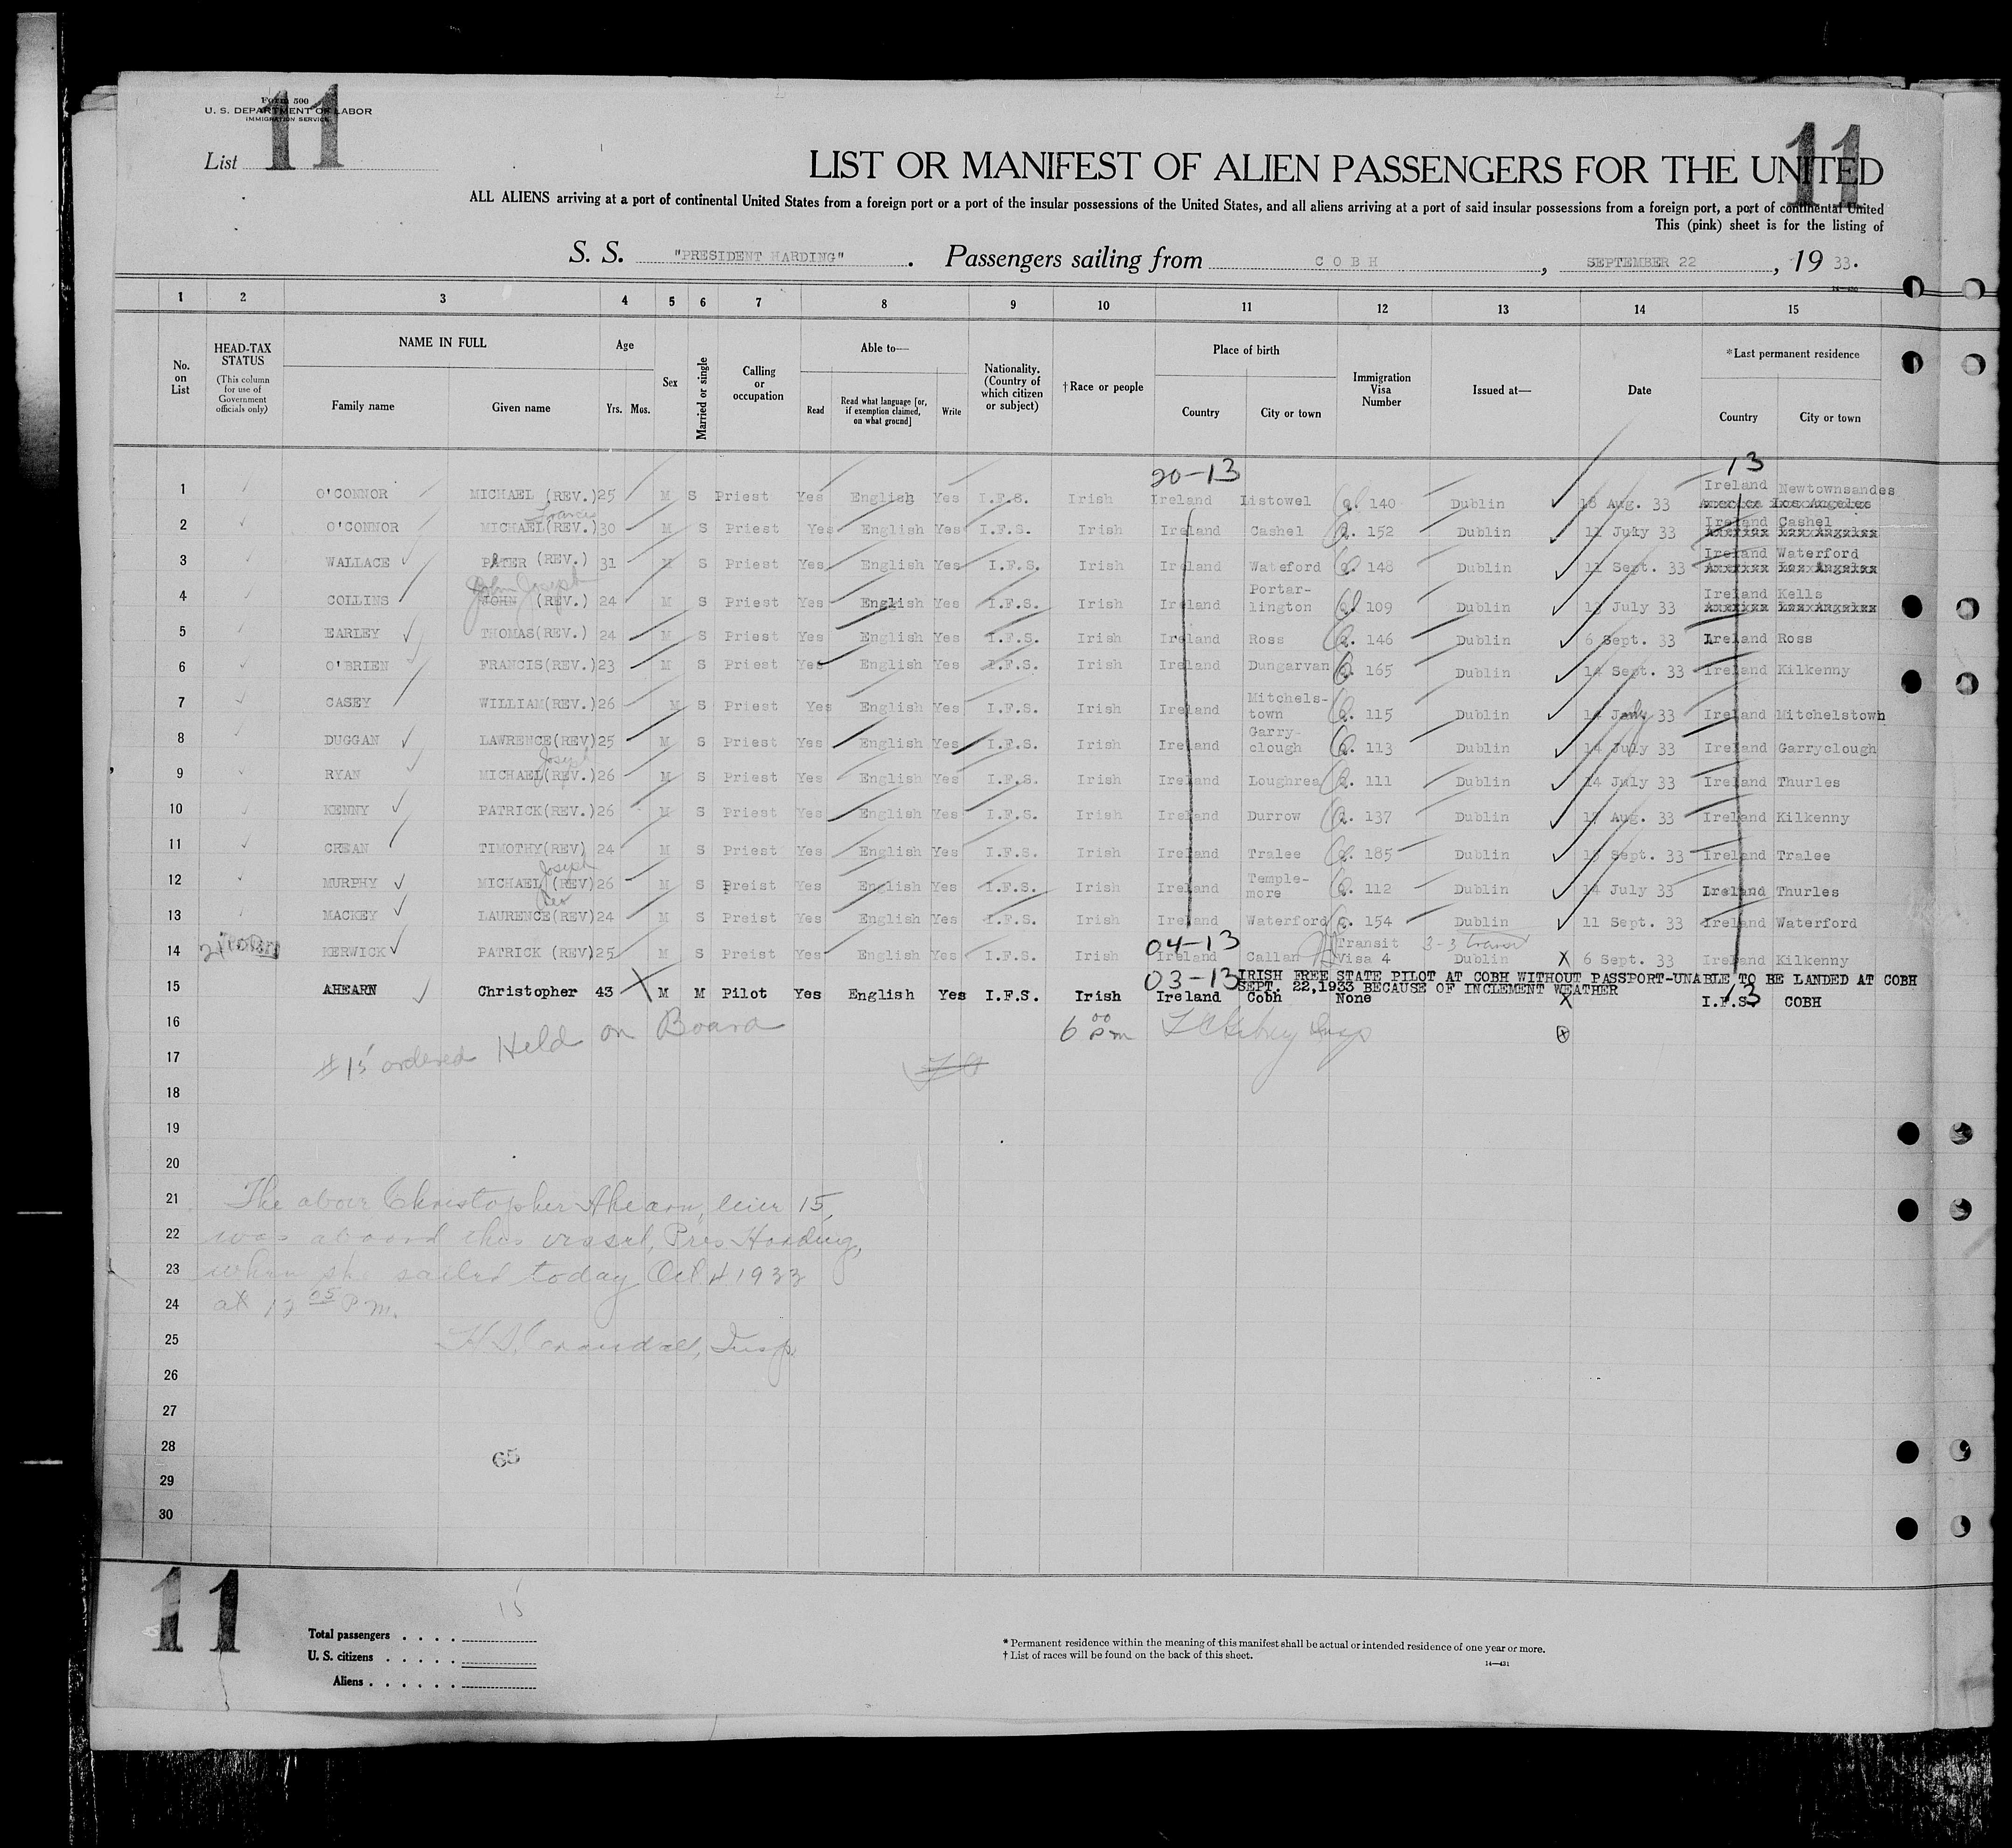 11
Form 500
U. S. DEPARTMENT OF LABOR
IMMIGRATION SERVICE
List
11
LIST OR MANIFEST OF ALIEN PASSENGERS FOR THE UNITED
ALL ALIENS arriving at a port of continental United States from a foreign port or a port of the insular possessions of the United States, and all aliens arriving at a port of said insular possessions from a foreign port, a port of continental United
This (pink) sheet is for the listing of
S. S. "PRESIDENT HARDING" . Passengers sailing from C O B H , SEPTEMBER 22 , 19 33.
1 2 3 4 5 6 7 8 9 10 11 12 13 14 15
No. on List
HEAD-TAX STATUS
(This column for use of Government officials only)
NAME IN FULL
Family name Given name
Age
Yrs. Mos.
Sex
Married or single
Calling or occupation
Able to—
Read
Read what language [or, if exemption claimed, on what ground]
Write
Nationality. (Country of which citizen or subject)
†Race or people
Place of birth
Country City or town
Immigration Visa Number
Issued at—
Date
*Last permanent residence
Country City or town
20-13 13
1 O'CONNOR MICHAEL (REV.) 25 M S Priest Yes English Yes I.F.S. Irish Ireland Listowel Q. 140 Dublin 16 Aug. 33 Ireland Newtownsandes
America Los Angeles
Francis
2 O'CONNOR MICHAEL(REV.) 30 M S Priest Yes English Yes I.F.S. Irish Ireland Cashel Q. 152 Dublin 11 July 33 Ireland Cashel
3 WALLACE PETER (REV.) 31 M S Priest Yes English Yes I.F.S. Irish Ireland Wateford Q. 148 Dublin 11 Sept. 33 Ireland Waterford
John Joseph
4 COLLINS JOHN (REV.) 24 M S Priest Yes English Yes I.F.S. Irish Ireland Portar-lington Q 109 Dublin 13 July 33 Ireland Kells
5 EARLEY THOMAS(REV.) 24 M S Priest Yes English Yes I.F.S. Irish Ireland Ross Q. 146 Dublin 6 Sept. 33 Ireland Ross
6 O'BRIEN FRANCIS(REV.) 23 M S Priest Yes English Yes I.F.S. Irish Ireland Dungarvan Q. 165 Dublin 14 Sept. 33 Ireland Kilkenny
7 CASEY WILLIAM(REV.) 26 M S Priest Yes English Yes I.F.S. Irish Ireland Mitchels-town Q. 115 Dublin 14 July 33 Ireland Mitchelstown
8 DUGGAN LAWRENCE(REV) 25 M S Priest Yes English Yes I.F.S. Irish Ireland Garry-clough Q. 113 Dublin 14 July 33 Ireland Garryclough
Joseph
9 RYAN MICHAEL(REV.) 26 M S Priest Yes English Yes I.F.S. Irish Ireland Loughrea Q. 111 Dublin 14 July 33 Ireland Thurles
10 KENNY PATRICK(REV.) 26 M S Priest Yes English Yes I.F.S. Irish Ireland Durrow Q. 137 Dublin 17 Aug. 33 Ireland Kilkenny
11 CREAN TIMOTHY(REV) 24 M S Priest Yes English Yes I.F.S. Irish Ireland Tralee Q. 185 Dublin Sept. 33 Ireland Tralee
Joseph
12 MURPHY MICHAEL (REV) 26 M S Preist Yes English Yes I.F.S. Irish Ireland Temple-more Q. 112 Dublin 14 July 33 Ireland Thurles
Rev
13 MACKEY LAURENCE(REV) 24 M S Preist Yes English Yes I.F.S. Irish Ireland Waterford Q. 154 Dublin 11 Sept. 33 Ireland Waterford
04-13 3-3 transit
14 KERWICK PATRICK (REV) 25 M S Preist Yes English Yes I.F.S. Irish Ireland Callan Transit Visa 4 Dublin X 6 Sept. 33 Ireland Kilkenny
03-13 IRISH FREE STATE PILOT AT COBH WITHOUT PASSPORT-UNABLE TO BE LANDED AT COBH
SEPT. 22,1933 BECAUSE OF INCLEMENT WEATHER
15 AHEARN Christopher 43 X M M Pilot Yes English Yes I.F.S. Irish Ireland Cobh None X I.F.S. 13 COBH
16 6 00 Pm Insp
17 #15 ordered Held on Board
18
19
20
21 The above Christopher Ahearn, line 15,
22 was aboard this vessel, Pres Harding,
23 when she sailed today Oct 4 1933
24 at 12 05 P.m.
25 H S Crandall, Insp.
26
27
28 65
29
30
11
15
Total passengers
U. S. citizens
Aliens
* Permanent residence within the meaning of this manifest shall be actual or intended residence of one year or more.
† List of races will be found on the back of this sheet.
14—431